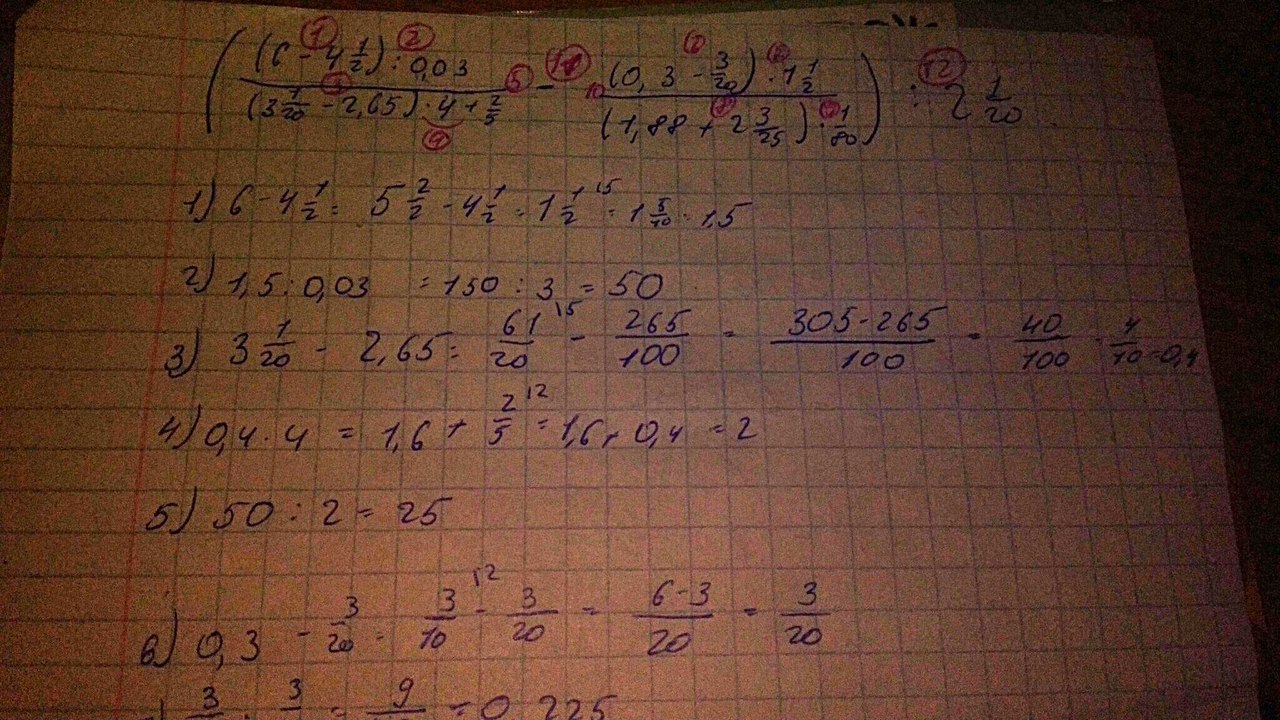 ( (6 - 4 1/2) : 0,03 / (3 1/20 - 2,65) · 4 + 2/5 - (0,3 - 3/20) · 1 1/2 / (1,88 + 2 3/25) · 1/80 ) : 2 1/20
1) 6 - 4 1/2 = 5 2/2 - 4 1/2 = 1 1/2 = 1 5/10 = 1,5
2) 1,5 : 0,03 = 150 : 3 = 50
3) 3 1/20 - 2,65 = 61/20 - 265/100 = 305-265/100 = 40/100 = 4/10 = 0,4
4) 0,4 · 4 = 1,6 + 2/5 = 1,6 + 0,4 = 2
5) 50 : 2 = 25
6) 0,3 - 3/20 = 3/10 - 3/20 = 6-3/20 = 3/20
3 · 3 = 9 = 0,225